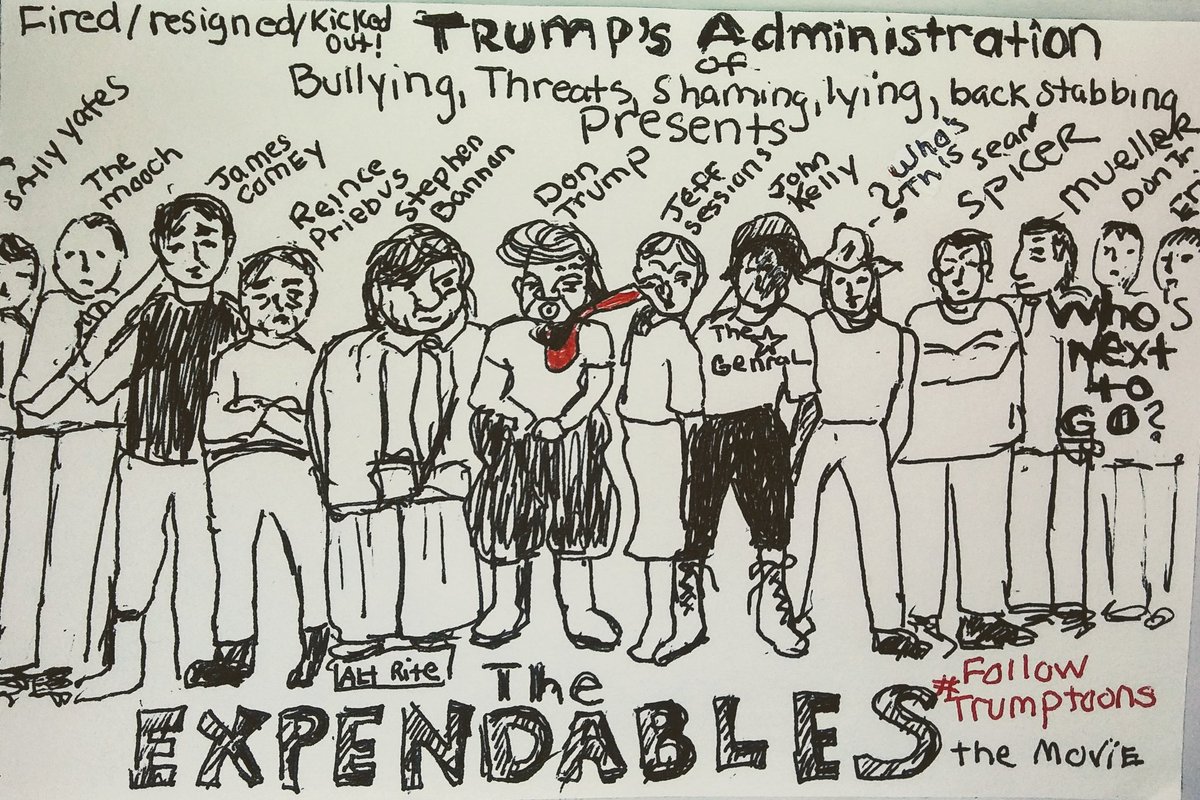 Fired/resigned/Kicked out!
TRUMP's Administration
of
Bullying, Threats, Shaming, lying, back stabbing
Presents
SALLY YATES
The mooch
James COMEY
Reince Priebus
Stephen Bannan
Don Trump
Jeff Sessions
John Kelly
? Who's This
Sean SPICER
Mueller
Don Jr
The Genral
Who's
Next
to
GO?
Alt Rite
The
EXPENDABLES
the Movie
#Follow
Trumptoons